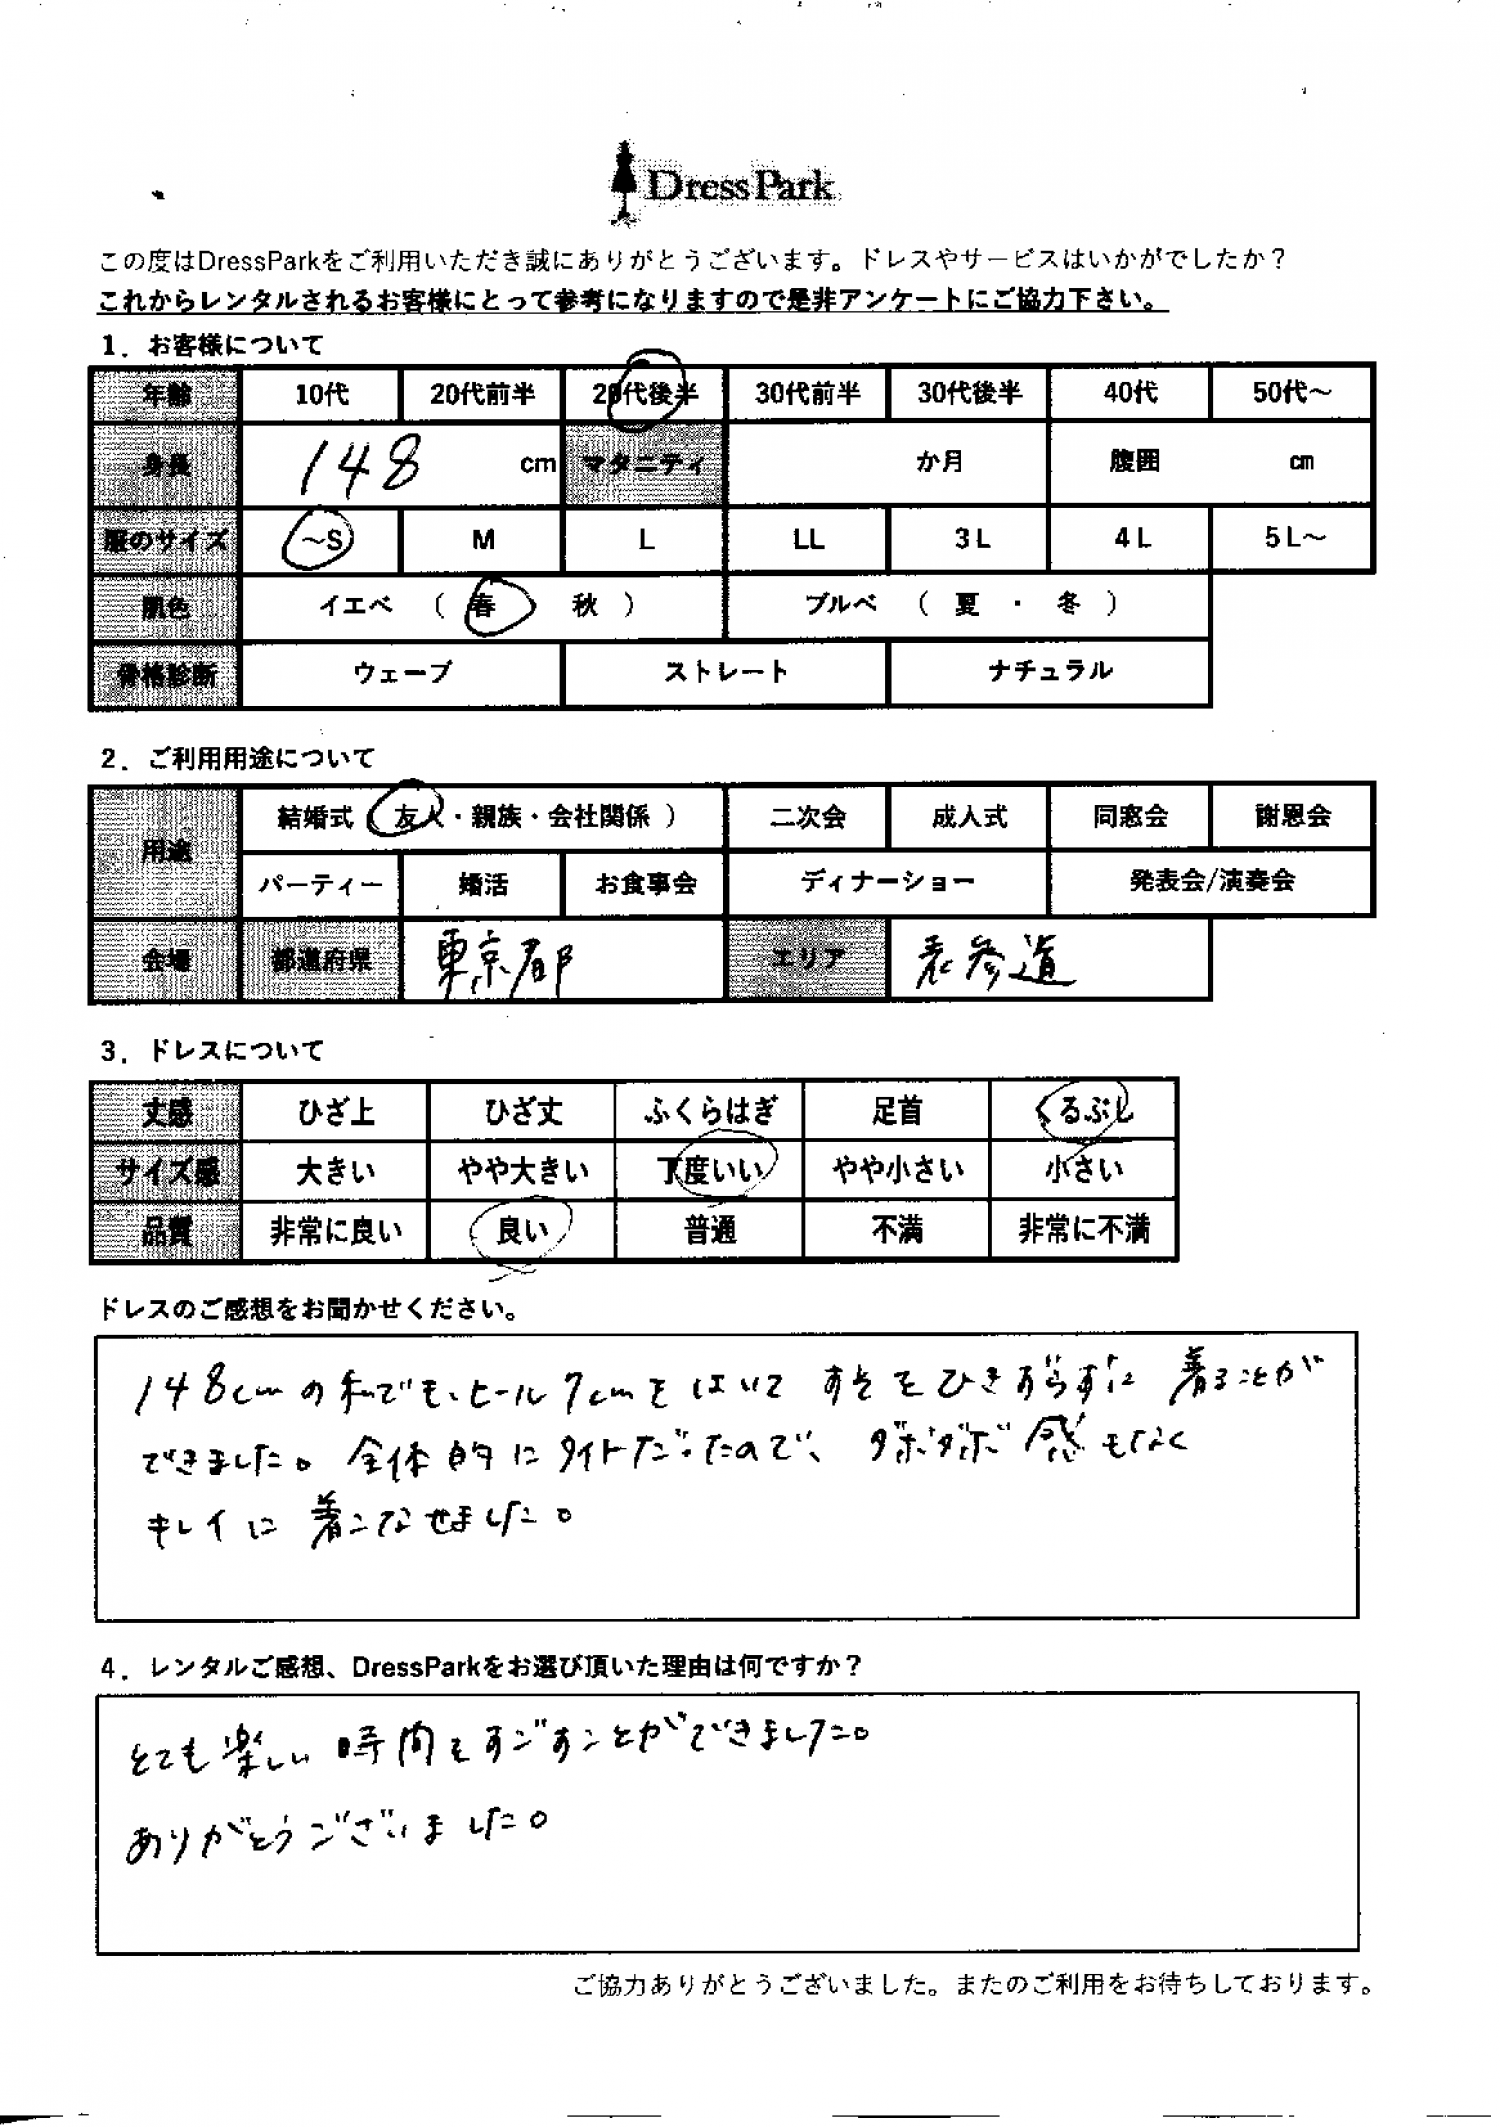 DressPark
この度はDressParkをご利用いただき誠にありがとうございます。ドレスやサービスはいかがでしたか？
これからレンタルされるお客様にとって参考になりますので是非アンケートにご協力下さい。
1．お客様について
年齢 10代 20代前半 20代後半 30代前半 30代後半 40代 50代～
身長 148 cm マタニティ か月 腹囲 cm
服のサイズ ～S M L LL 3L 4L 5L～
肌色 イエベ （ 春 秋 ） ブルベ （ 夏 ・ 冬 ）
骨格診断 ウェーブ ストレート ナチュラル
2．ご利用用途について
用途 結婚式（友人・親族・会社関係） 二次会 成人式 同窓会 謝恩会
パーティー 婚活 お食事会 ディナーショー 発表会/演奏会
会場 都道府県 東京都 エリア 表参道
3．ドレスについて
丈感 ひざ上 ひざ丈 ふくらはぎ 足首 くるぶし
サイズ感 大きい やや大きい 丁度いい やや小さい 小さい
品質 非常に良い 良い 普通 不満 非常に不満
ドレスのご感想をお聞かせください。
148cmの私でも、ヒール7cmをはいてすそをひきずらずに着ることが
できました。全体的にタイトだったので、ダボダボ感もなく
キレイに着こなせました。
4．レンタルご感想、DressParkをお選び頂いた理由は何ですか？
とても楽しい時間をすごすことができました。
ありがとうございました。
ご協力ありがとうございました。またのご利用をお待ちしております。